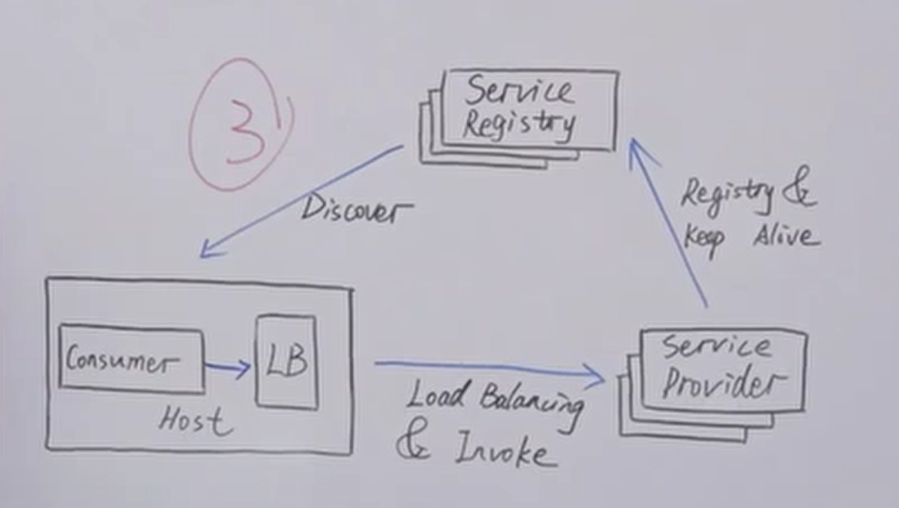 3'
Service
Registry
Discover
Registry &
Keep Alive
Consumer
LB
Host
Load Balancing
& Invoke
Service
Provider